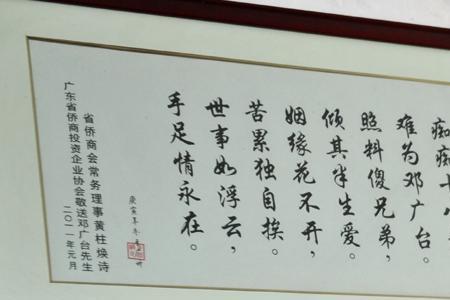 痴痴十
难为邓广台。
照料傻兄弟，
倾其半生爱。
姻缘花不开，
苦累独自挨。
世事如浮云，
手足情永在。
庚寅年冬
省侨商会常务理事黄柱焕诗
广东省侨商投资企业协会敬送邓广台先生
二〇一一年元月